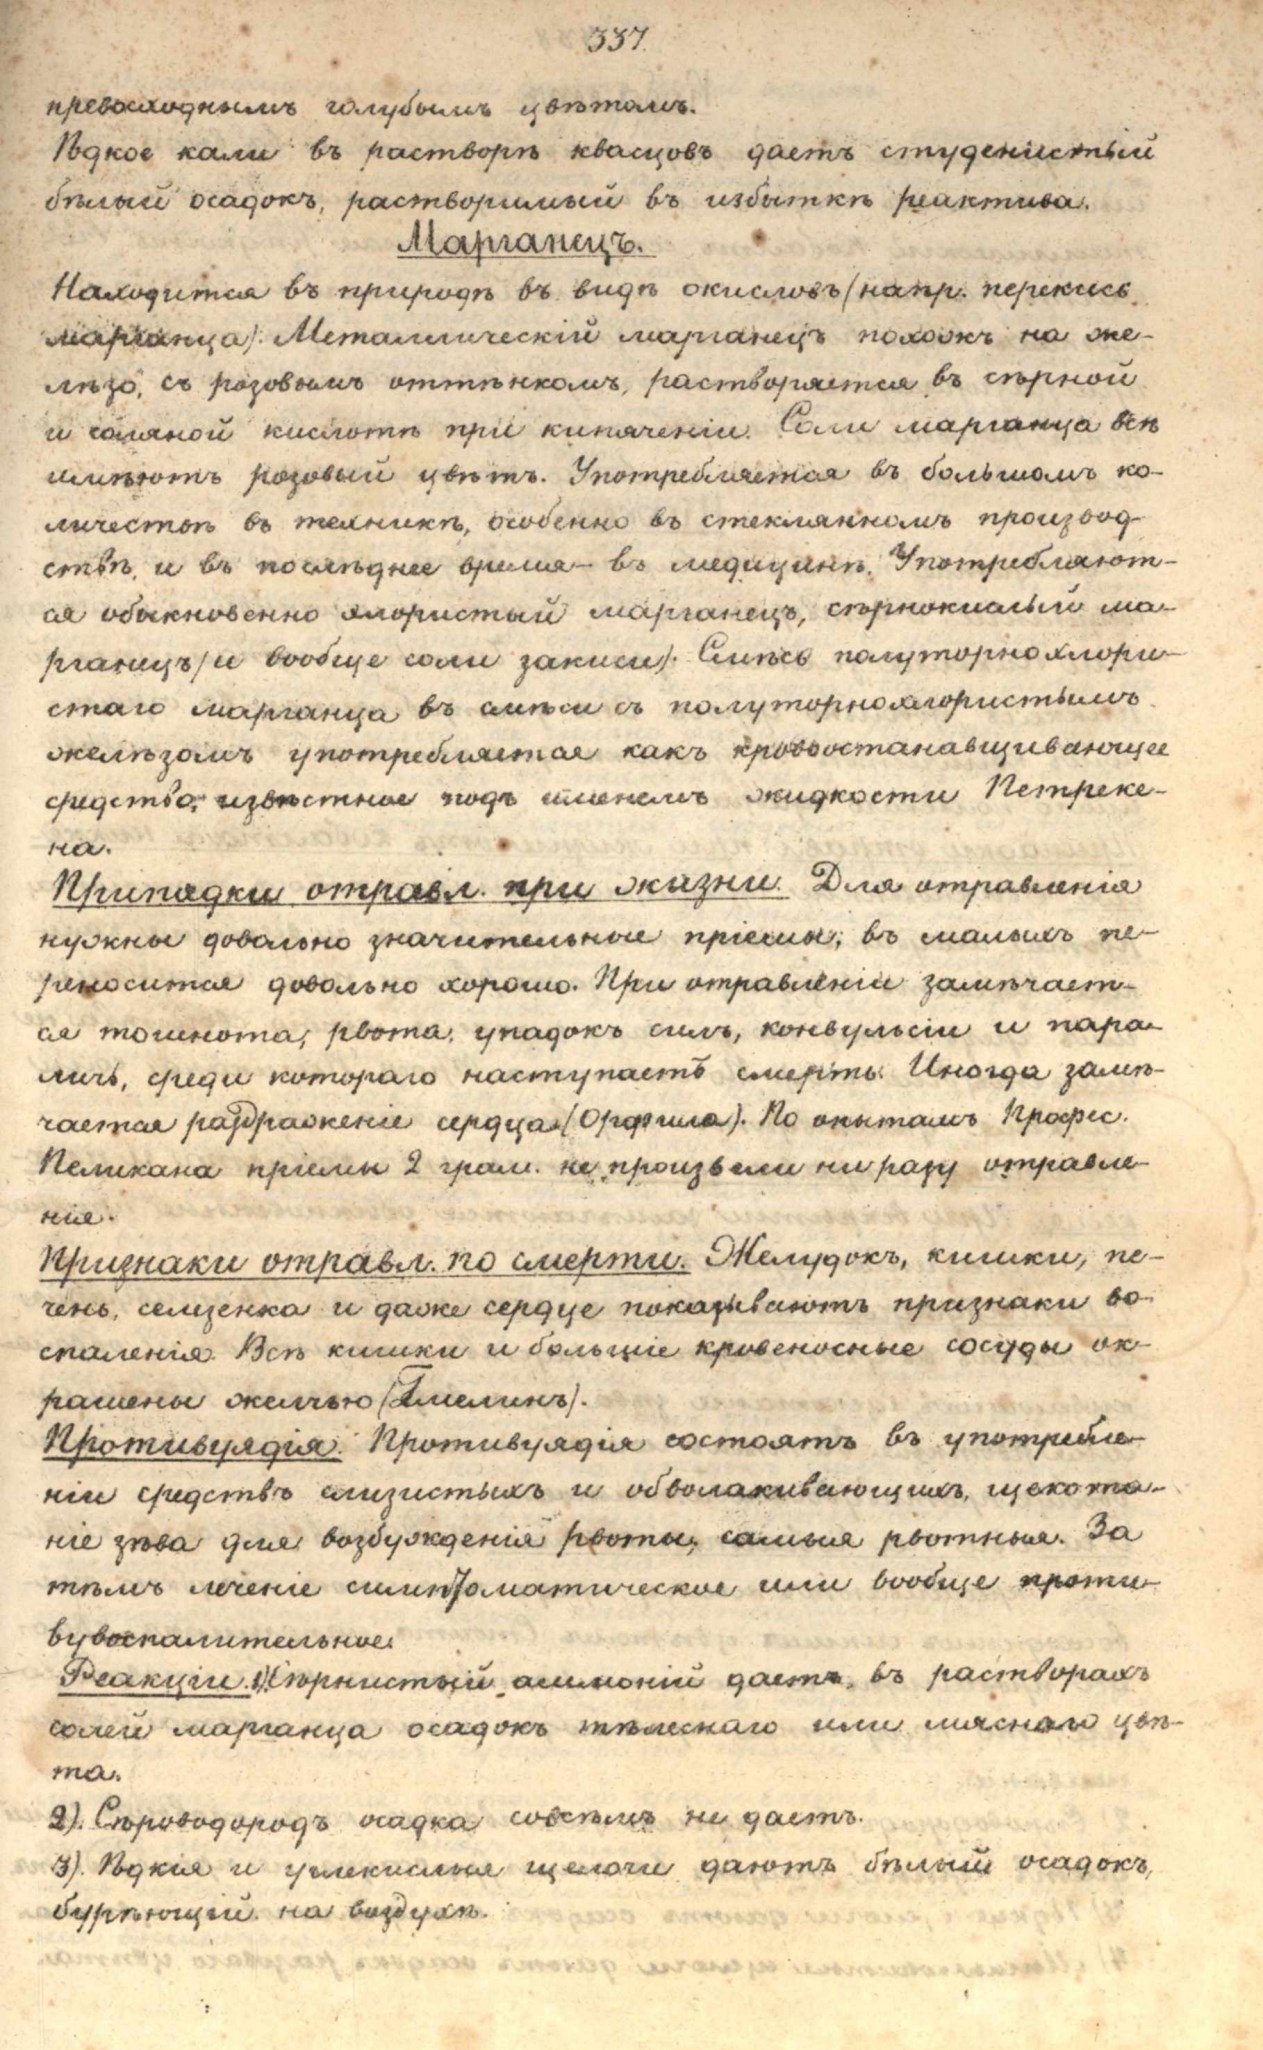 337.
превосходнымъ голубымъ цвѣтомъ.
Ѣдкое кали въ растворѣ квасцовъ даетъ студенистый
бѣлый осадокъ, растворимый въ избыткѣ реактива.
Марганецъ.
Находится въ природѣ въ видѣ окисловъ (напр. перекись
марганца). Металлическій марганецъ похожъ на же-
лѣзо, съ розовымъ оттѣнкомъ, растворяется въ сѣрной
и соляной кислотѣ при кипяченіи. Соли марганца всѣ
имѣютъ розовый цвѣтъ. Употребляется въ большомъ ко-
личествѣ въ техникѣ, особенно въ стеклянномъ производ-
ствѣ, и въ послѣднее время – въ медицинѣ. Употребляют-
ся обыкновенно хлористый марганецъ, сѣрнокислый ма-
рганецъ (и вообще соли закиси). Смѣсь полуторнохлори-
стаго марганца въ смѣси съ полуторнохлористымъ
желѣзомъ употребляется какъ кровоостанавщивающее
средство, извѣстное подъ именемъ жидкости Петреке-
на.
Припадки отравл. при жизни. Для отравленія
нужны довольно значительные пріемы; въ малыхъ пе-
реносится довольно хорошо. При отравленіи замѣчает-
ся тошнота, рвота, упадокъ силъ, конвульсіи и пара-
личъ, среди котораго наступаетъ смерть. Иногда замѣ-
чается раздраженіе сердца (Орфила). По опытамъ Профес.
Пеликана пріемы 2 грам. не произвели ни разу отравле-
нія.
Признаки отравл. по смерти. Желудокъ, кишки, пе-
чень, селезенка и даже сердце показываютъ признаки во-
спаленія. Всѣ кишки и большіе кровеносные сосуды ок-
рашены желчью (Гмелинъ).
Противуядія. Противуядія состоятъ въ употребле-
ніи средствъ слизистыхъ и обволакивающихъ, щекота-
ніе зѣва для возбужденія рвоты, самыя рвотныя. За
тѣмъ леченіе симптоматическое или вообще проти-
вувоспалительное.
Реакціи. 1) Сѣрнистый аммоній даетъ въ растворахъ
солей марганца осадокъ тѣлеснаго или мяснаго цвѣ-
та.
2). Сѣроводородъ осадка совсѣмъ не даетъ.
3). Ѣдкія и углекислыя щелочи даютъ бѣлый осадокъ,
бурѣющій на воздухѣ.